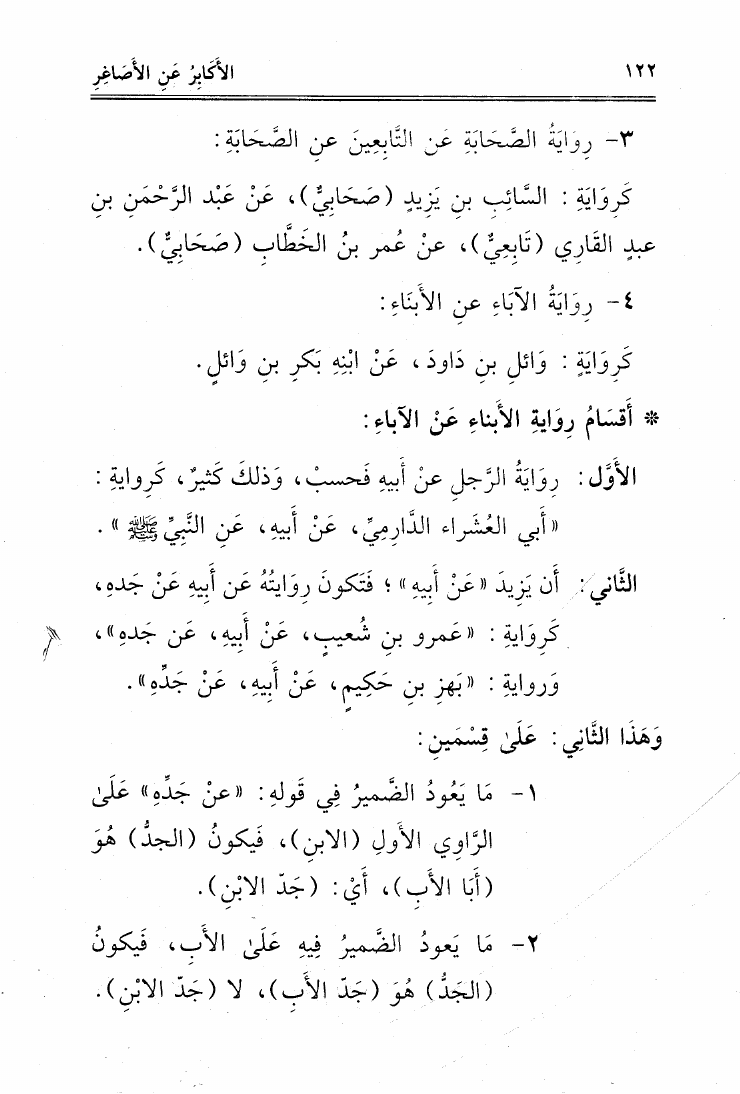 ١٢٢ الأَكَابِرُ عَنِ الأَصَاغِرِ
٣- رِوَايَةُ الصَّحَابَةِ عَن التَّابِعِينَ عنِ الصَّحَابَةِ:
كَرِوَايَةِ: السَّائِبِ بنِ يَزِيدٍ (صَحَابِيٌّ)، عَنْ عَبْد الرَّحْمَنِ بنِ
عبدٍ القَارِي (تَابِعِيٌّ)، عنْ عُمر بنُ الخَطَّابِ (صَحَابِيٌّ).
٤- رِوَايَةُ الآبَاءِ عنِ الأَبنَاءِ:
كَرِوَايَةٍ: وَائلِ بنِ دَاودَ، عَنْ ابْنِهِ بَكرِ بنِ وَائلٍ.
* أَقسَامُ رِوَايةِ الأَبناءِ عَنْ الآباءِ:
الأَوَّل: رِوَايَةُ الرَّجلِ عنْ أَبيهِ فَحسبْ، وَذلكَ كَثيرٌ، كَروايةِ:
«أَبي العُشَراء الدَّارِمِيِّ، عَنْ أَبيهِ، عَنِ النَّبِيِّ ﷺ».
الثَّاني: أَن يَزِيدَ «عَنْ أَبيهِ»؛ فَتَكونَ رِوَايتُهُ عَن أَبيهِ عَنْ جَدهِ،
كَرِوَايةِ: «عَمرو بنِ شُعيبٍ، عَنْ أَبيهِ، عَن جَدهِ»،
وَروايةِ: «بَهزِ بنِ حَكِيمٍ، عَنْ أَبِيهِ، عَنْ جَدِّهِ».
وَهَذَا الثَّانِي: عَلَىٰ قِسْمَينِ:
١- مَا يَعُودُ الضَّميرُ فِي قَولهِ: «عنْ جَدِّهِ» عَلَىٰ
الرَّاوِي الأَولِ (الابنِ)، فَيكونُ (الجدُّ) هُوَ
(أَبَا الأَبِ)، أَيْ: (جَدّ الابْنِ).
٢- مَا يَعودُ الضَّميرُ فِيهِ عَلَىٰ الأَبِ، فَيكونُ
(الجَدُّ) هُوَ (جَدّ الأَبِ)، لا (جَدّ الابْنِ).